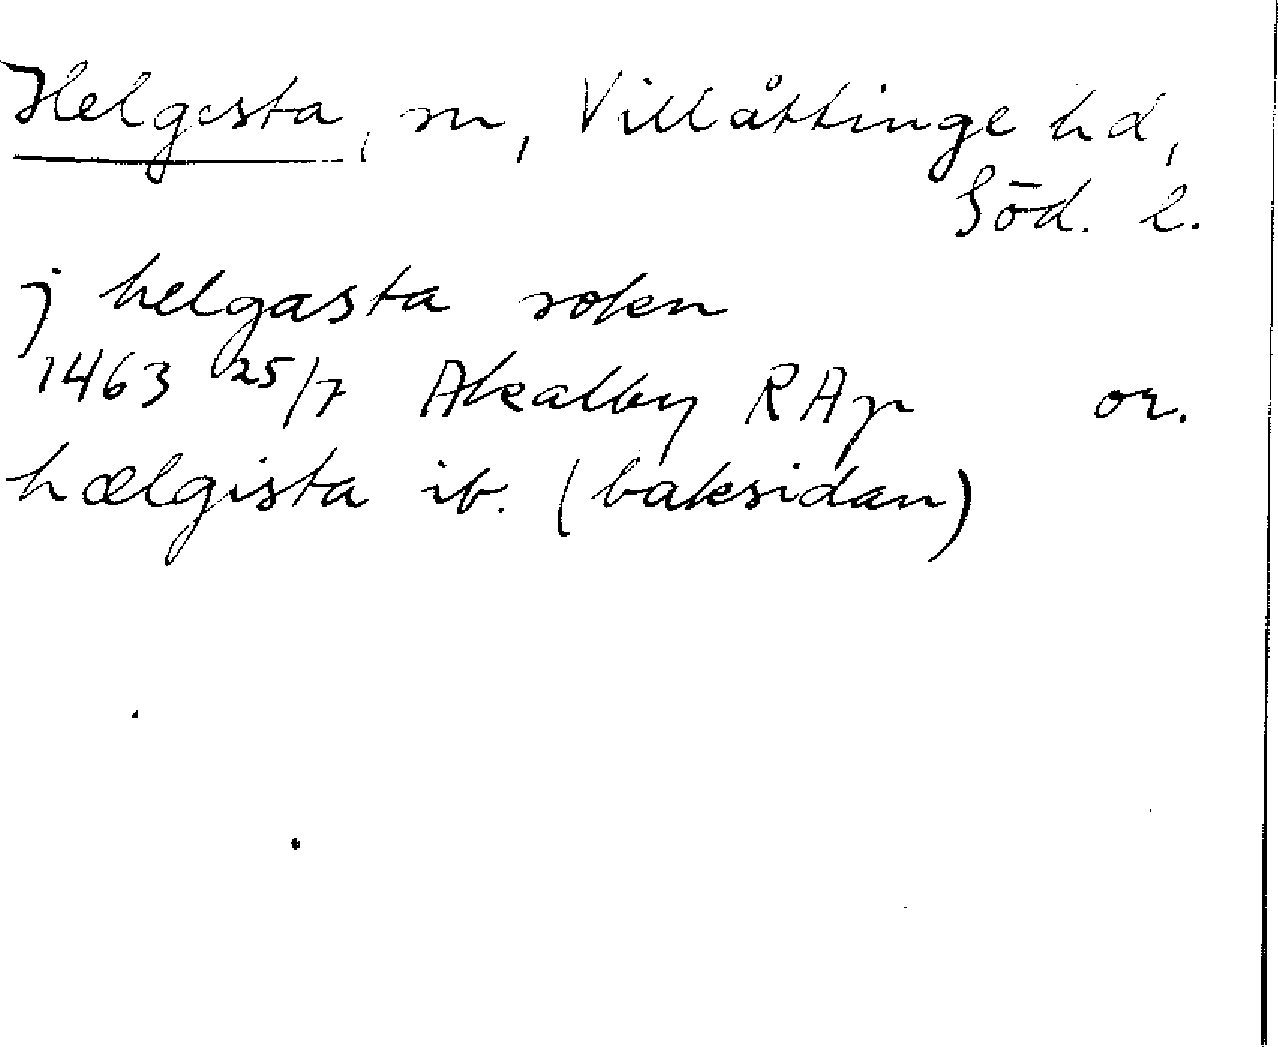 Helgesta, sn, Villåttinge hd,
Söd. l.
j helgasta sokn
1463 25/7 Akalby RAp or.
hælgista ib. (baksidan)